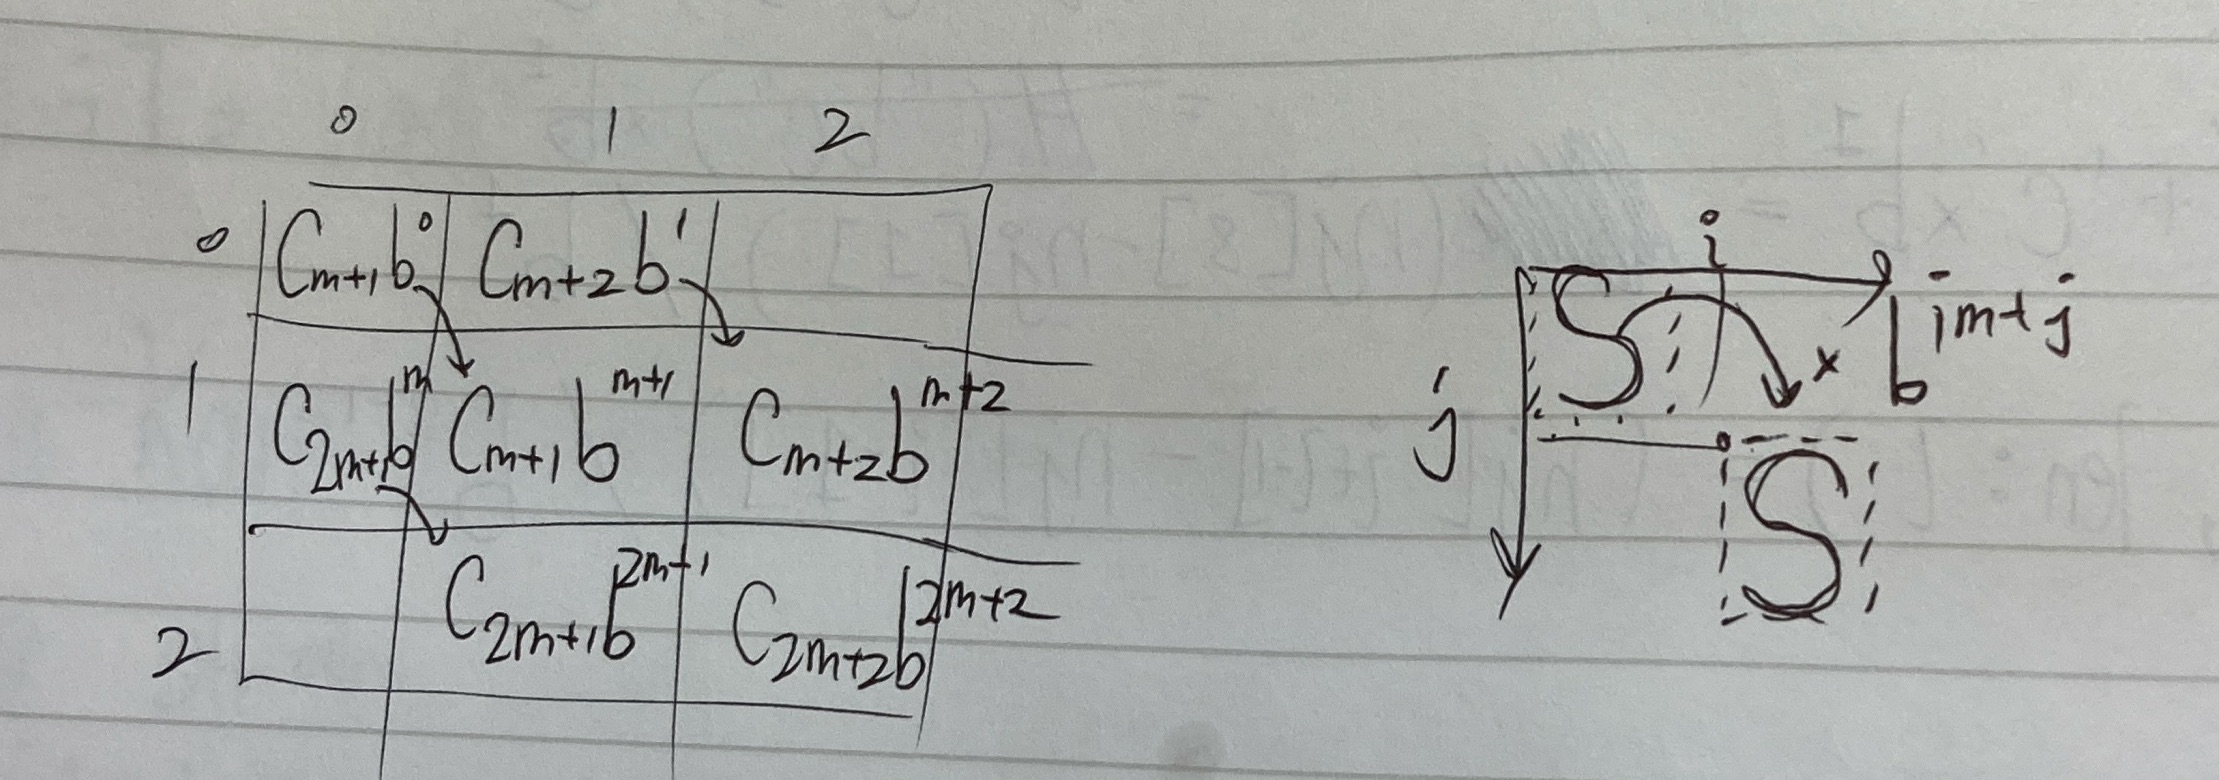 0 1 2
0 C_{m+1}b^0 C_{m+2}b^1
1 C_{2m+1}b^m C_{m+1}b^{m+1} C_{m+2}b^{m+2}
2 C_{2m+1}b^{2m+1} C_{2m+2}b^{2m+2}
i
S × b^{im+j}
j
S